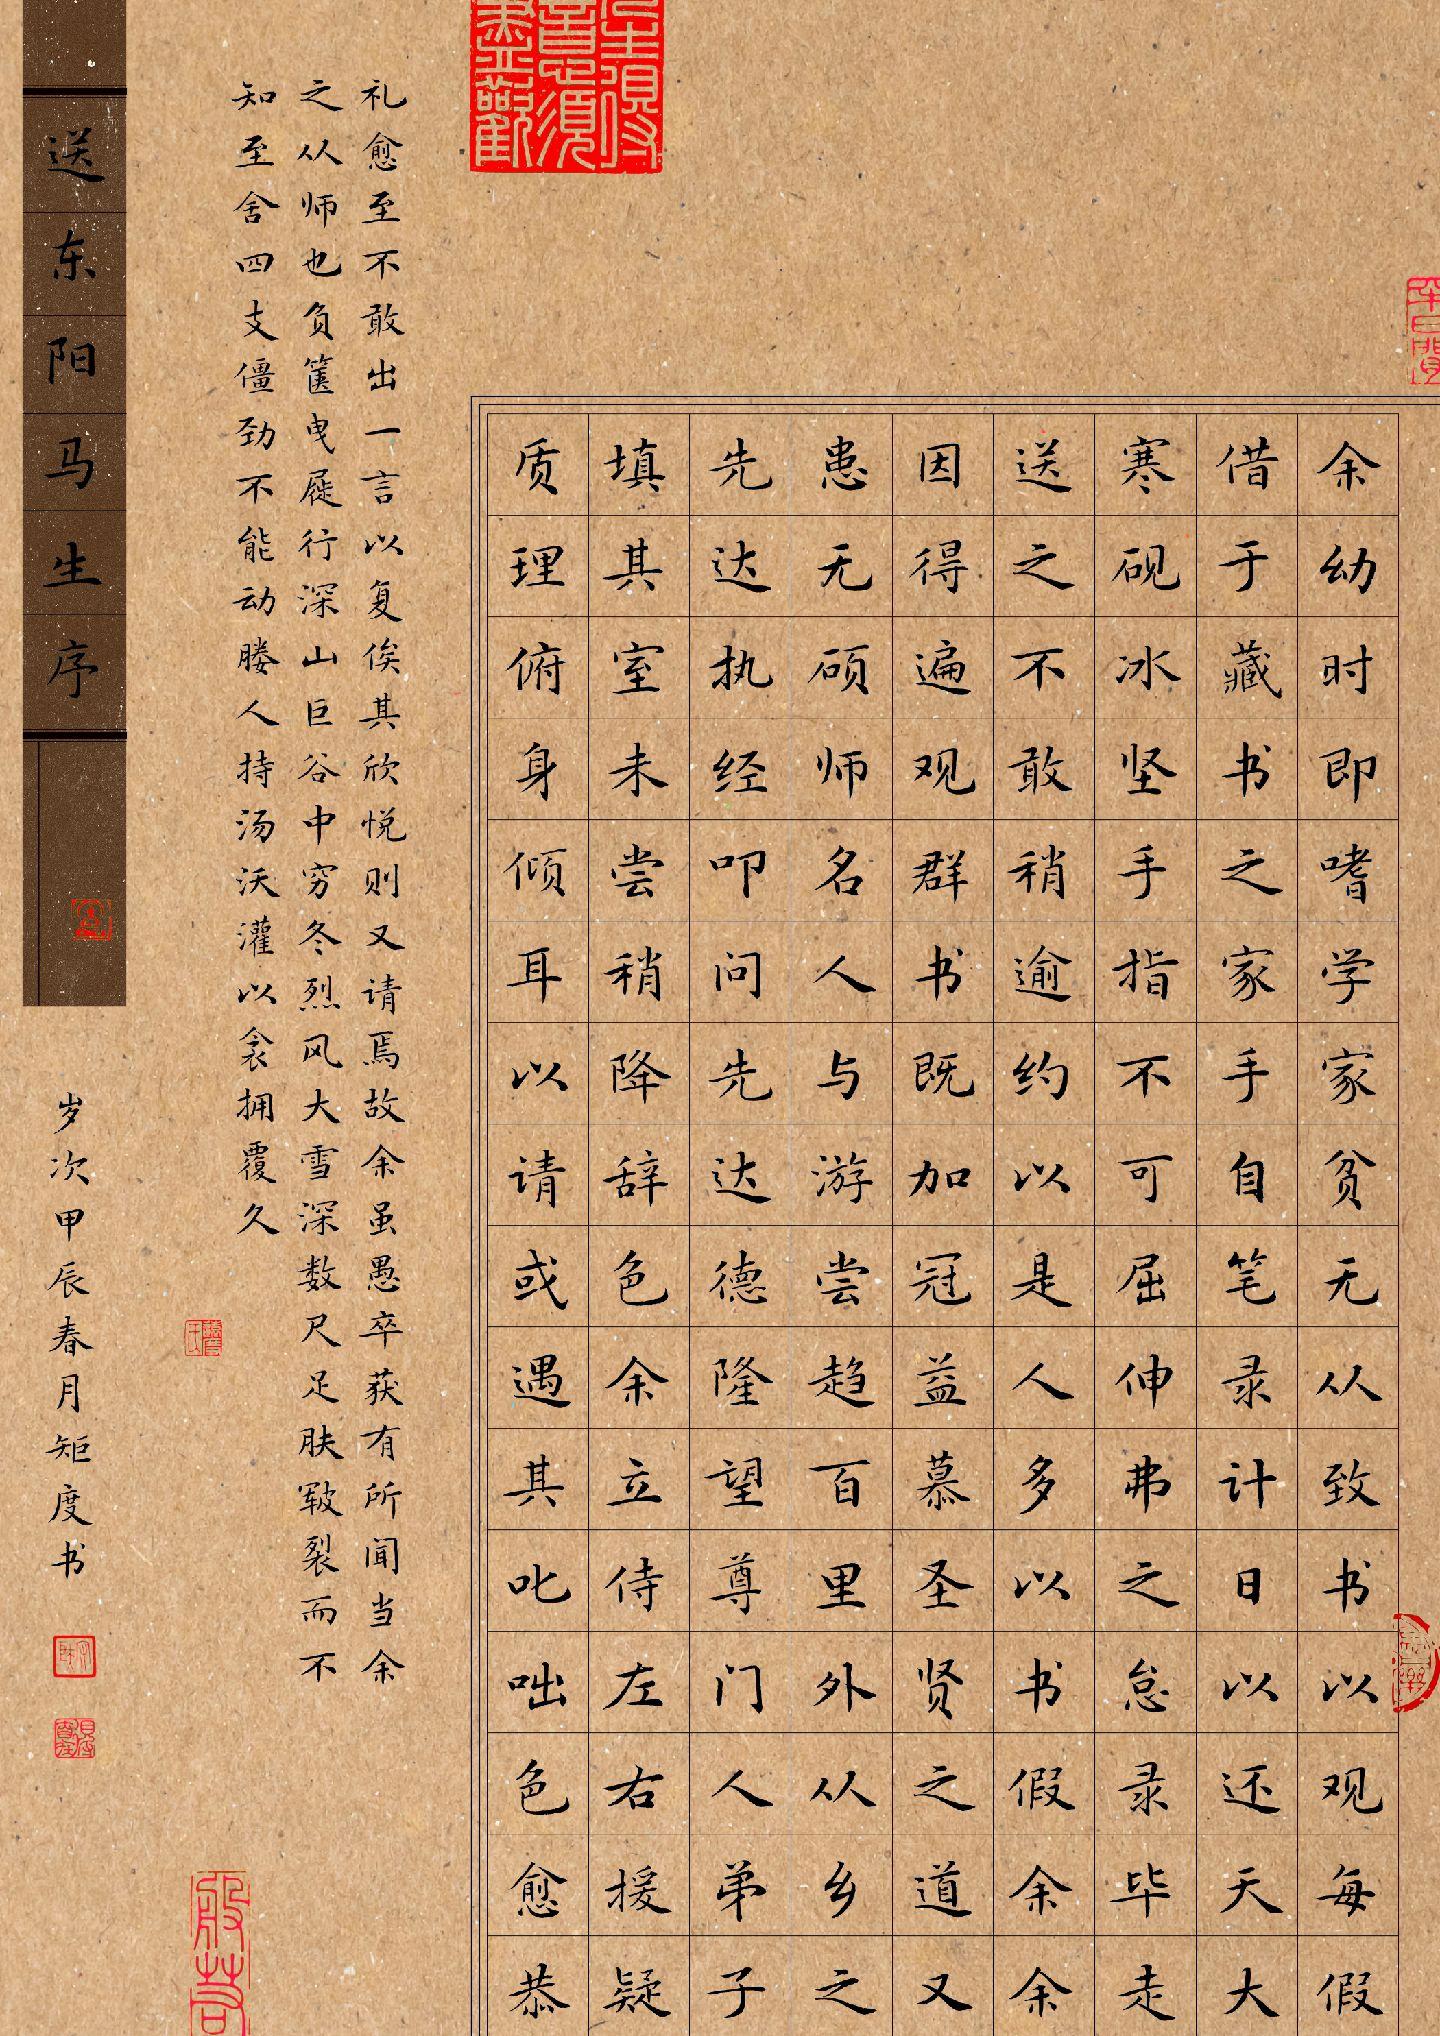 余幼时即嗜学家贫无从致书以观每假
借于藏书之家手自笔录计日以还天大
寒砚冰坚手指不可屈伸弗之怠录毕走
送之不敢稍逾约以是人多以书假余余
因得遍观群书既加冠益慕圣贤之道又
患无硕师名人与游尝趋百里外从乡之
先达执经叩问先达德隆望尊门人弟子
填其室未尝稍降辞色余立侍左右援疑
质理俯身倾耳以请或遇其叱咄色愈恭
礼愈至不敢出一言以复俟其欣悦则又请焉故余虽愚卒获有所闻当余
之从师也负箧曳屣行深山巨谷中穷冬烈风大雪深数尺足肤皲裂而不
知至舍四支僵劲不能动媵人持汤沃灌以衾拥覆久
送东阳马生序
岁次甲辰春月矩度书